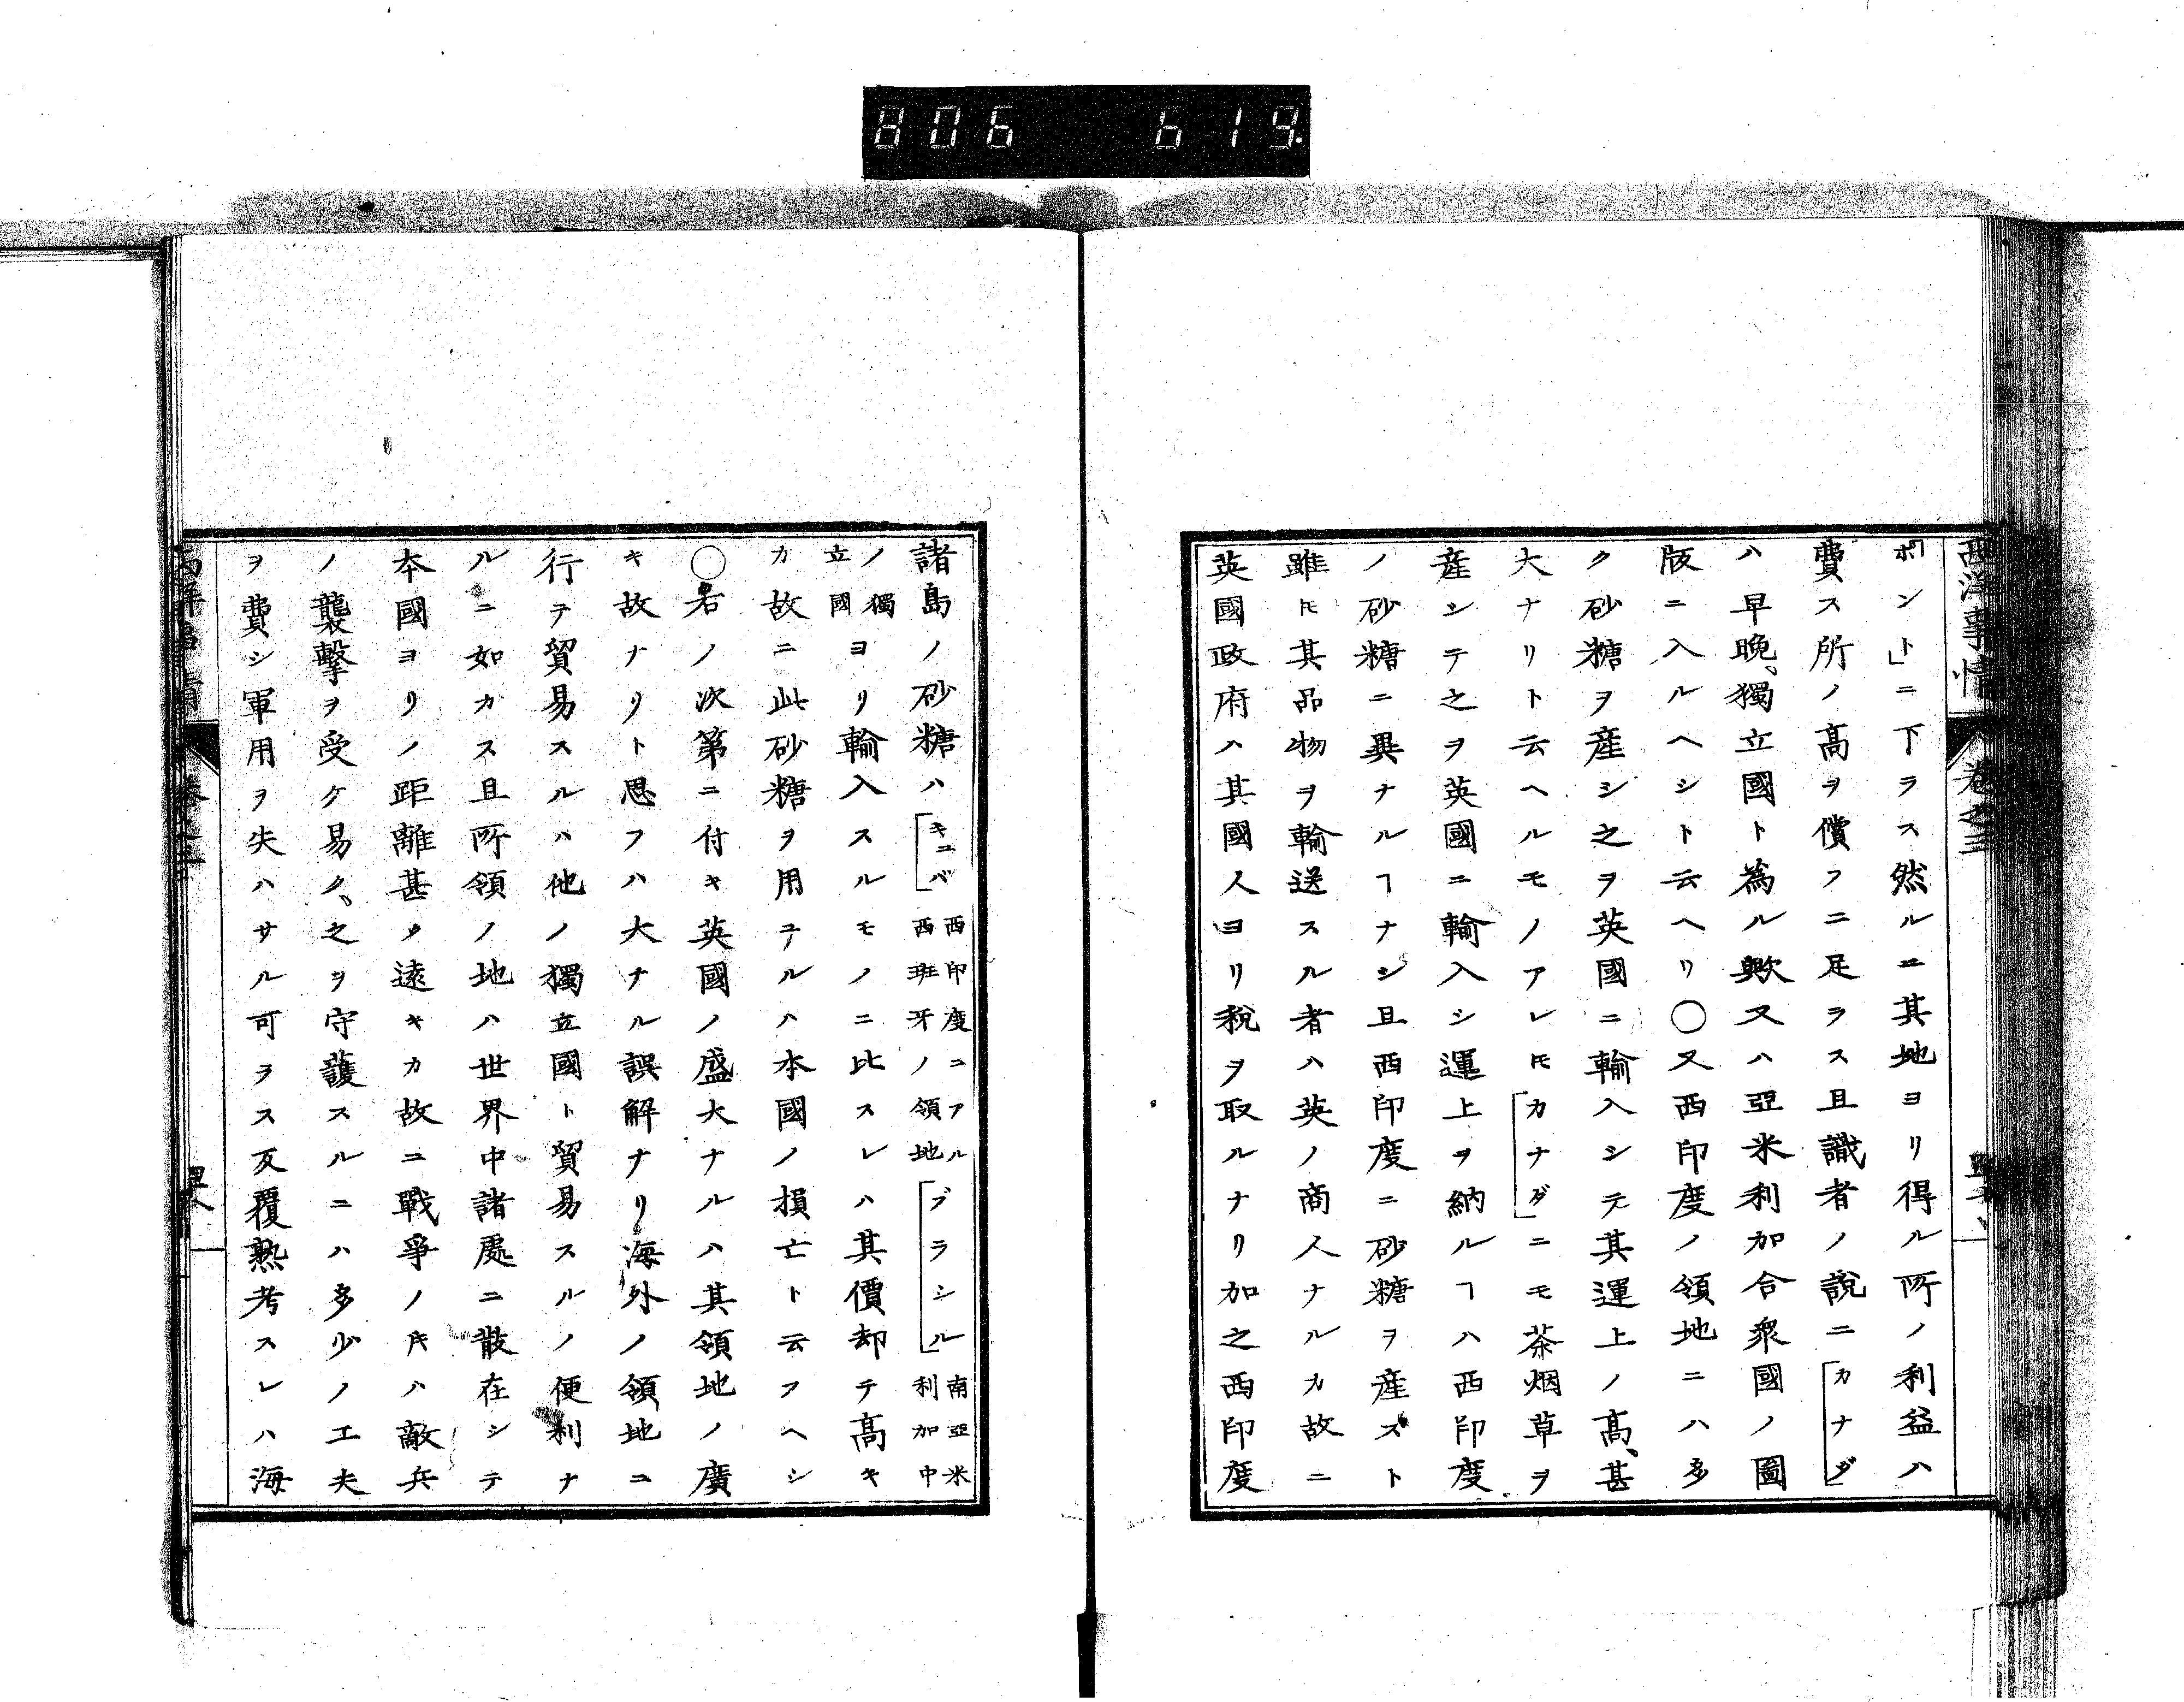 806 619.
西洋事情 卷之三
ポント」ニ下ラス然ルニ其地ヨリ得ル所ノ利益ハ
費ス所ノ高ヲ償フニ足ラス且識者ノ說ニ「カナダ」
ハ早晩、獨立國ト為ル歟又ハ亞米利加合衆國ノ圖
版ニ入ルヘシト云ヘリ〇又西印度ノ領地ニハ多
ク砂糖ヲ産シ之ヲ英國ニ輸入シテ其運上ノ高、甚
大ナリト云ヘルモノアレ𪜈「カナダ」ニモ茶烟草ヲ
産シテ之ヲ英國ニ輸入シ運上ヲ納ルヿハ西印度
ノ砂糖ニ異ナルヿナシ且西印度ニ砂糖ヲ産スト
雖𪜈其品物ヲ輸送スル者ハ英ノ商人ナルカ故ニ
英國政府ハ其國人ヨリ稅ヲ取ルナリ加之西印度
諸島ノ砂糖ハ「キユバ」西印度ニアル西班牙ノ領地「ブラシル」南亞米利加中
ノ獨立國ヨリ輸入スルモノニ比スレハ其價却テ高キ
カ故ニ此砂糖ヲ用ユルハ本國ノ損亡ト云フヘシ
〇右ノ次第ニ付キ英國ノ盛大ナルハ其領地ノ廣
キ故ナリト思フハ大ナル誤解ナリ海外ノ領地ニ
行テ貿易スルハ他ノ獨立國ト貿易スルノ便利ナ
ルニ如カス且所領ノ地ハ世界中諸處ニ散在シテ
本國ヨリノ距離甚タ遠キカ故ニ戰爭ノ𪜈ハ敵兵
ノ襲擊ヲ受ケ易ク、之ヲ守護スルニハ多少ノ工夫
ヲ費シ軍用ヲ失ハサル可ラス反覆熟考スレハ海
卷之三